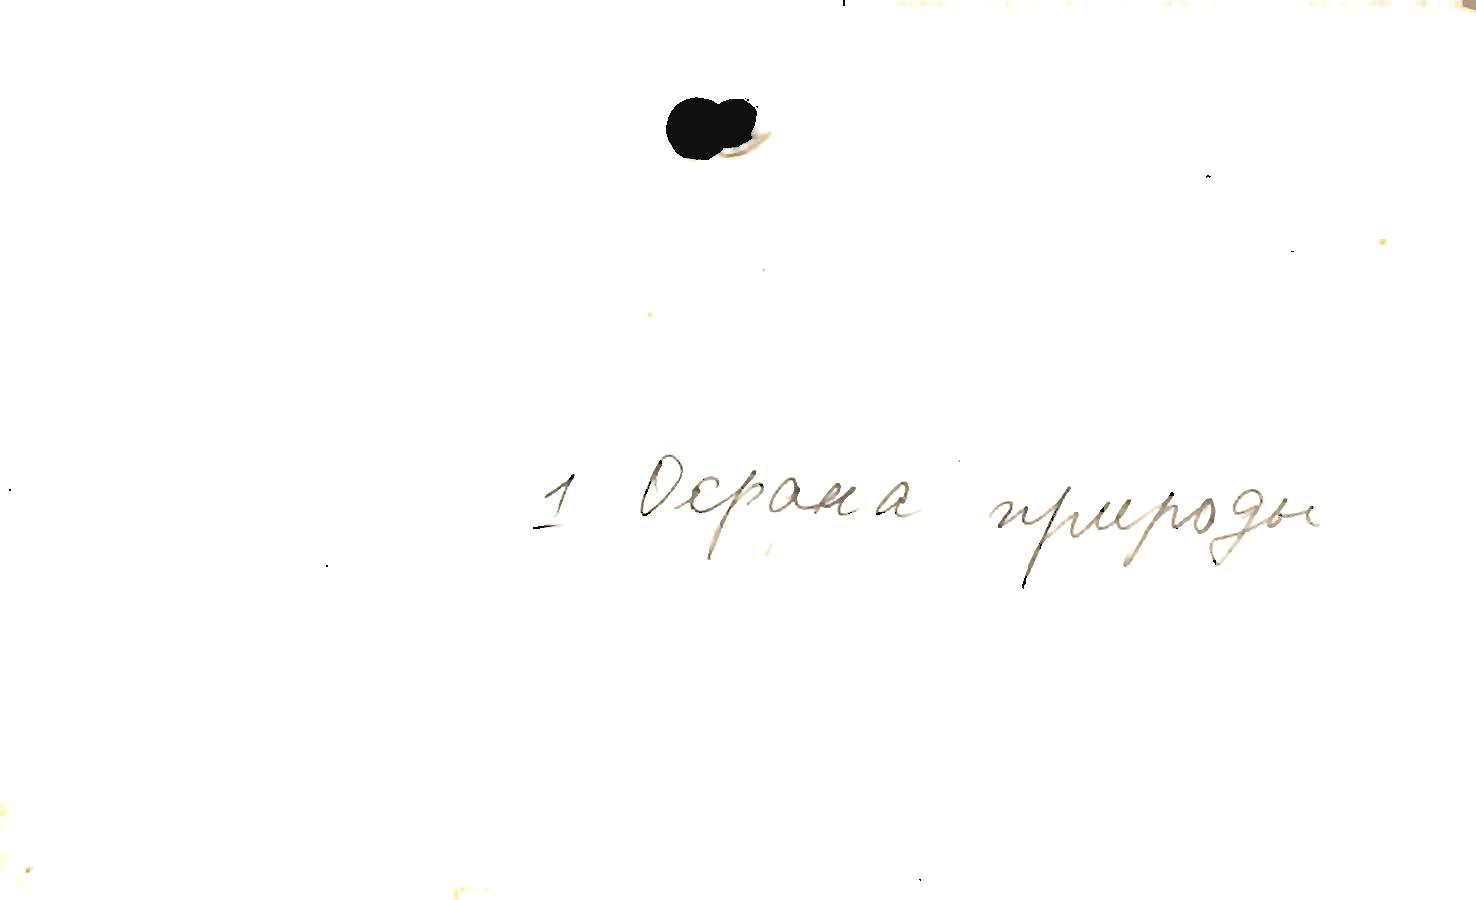 1 Охрана природы